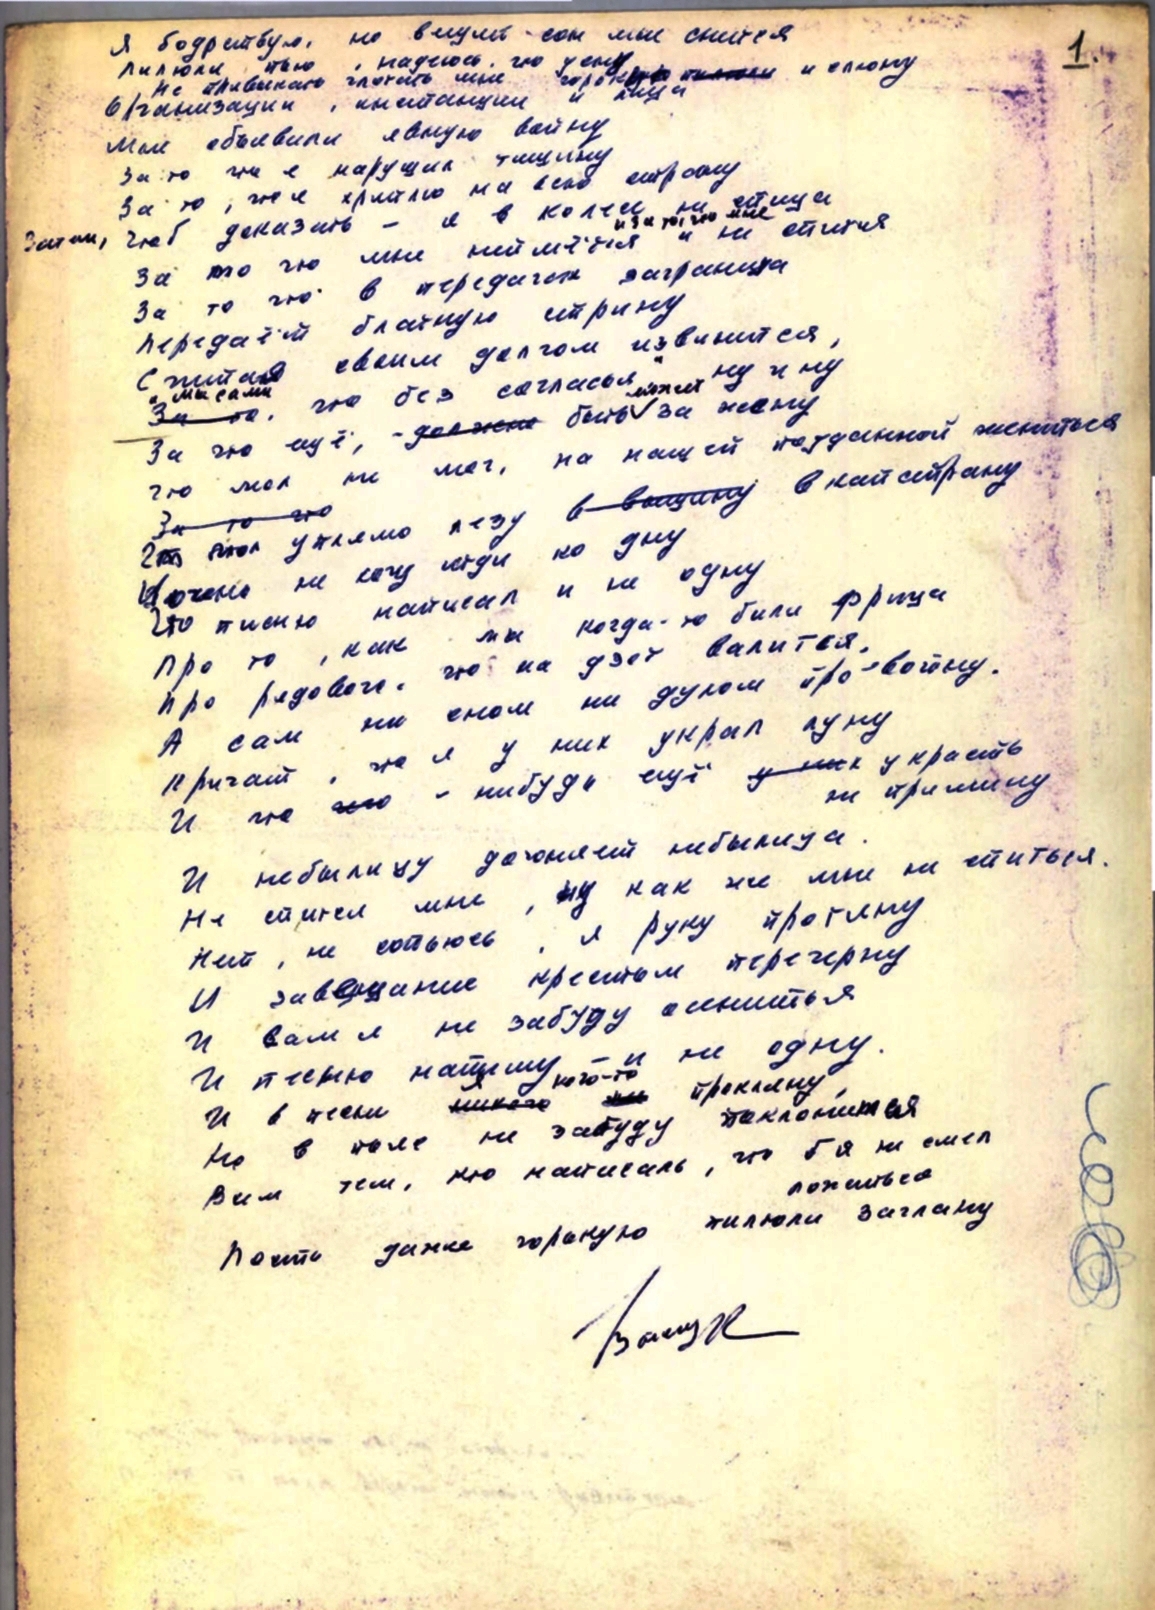 1.
Я бодрствую, но вещий сон мне снится
Пилюли пью, надеюсь, что усну
Не привыкать глотать мне горькую пилюли и слюну
Организации, инстанции и лица
Мне объявили явную войну
За то что я нарушил тишину
За то, что я хриплю на всю страну
Затем, чтоб доказать - я в колесе не спица
За то что мне неймётся и за то, что мне и не спится
За то что в передачах заграница
Передаёт блатную старину
Считая своим долгом извиниться,
"мы сами
За то, что без согласья" ну и ну
За что ещё, - должно быть может за жену
Что мол не мог, на нашей подданной жениться
За то что
Что мол упрямо лезу в вышину в капстрану
И очень не хочу идти ко дну
Что песню написал и не одну
Про то, как мы когда-то били фрица
Про рядового, что на дзот валится,
А сам ни сном ни духом про войну.
Кричат, что я у них украл луну
И что что-нибудь ещё у них украсть
не премину
И небылицу догоняет небылица.
Не спится мне, ну как же мне не спиться.
Нет, не сопьюсь, я руку протяну
И завещание крестом перечеркну
И сам я не забуду осениться
И песню напишу - и не одну.
И в песни я никого кого-то не прокляну,
Но в поле не забуду поклониться
Всем тем, кто написали, что б я не смел
ложиться
Пусть даже горькую пилюли заглочу